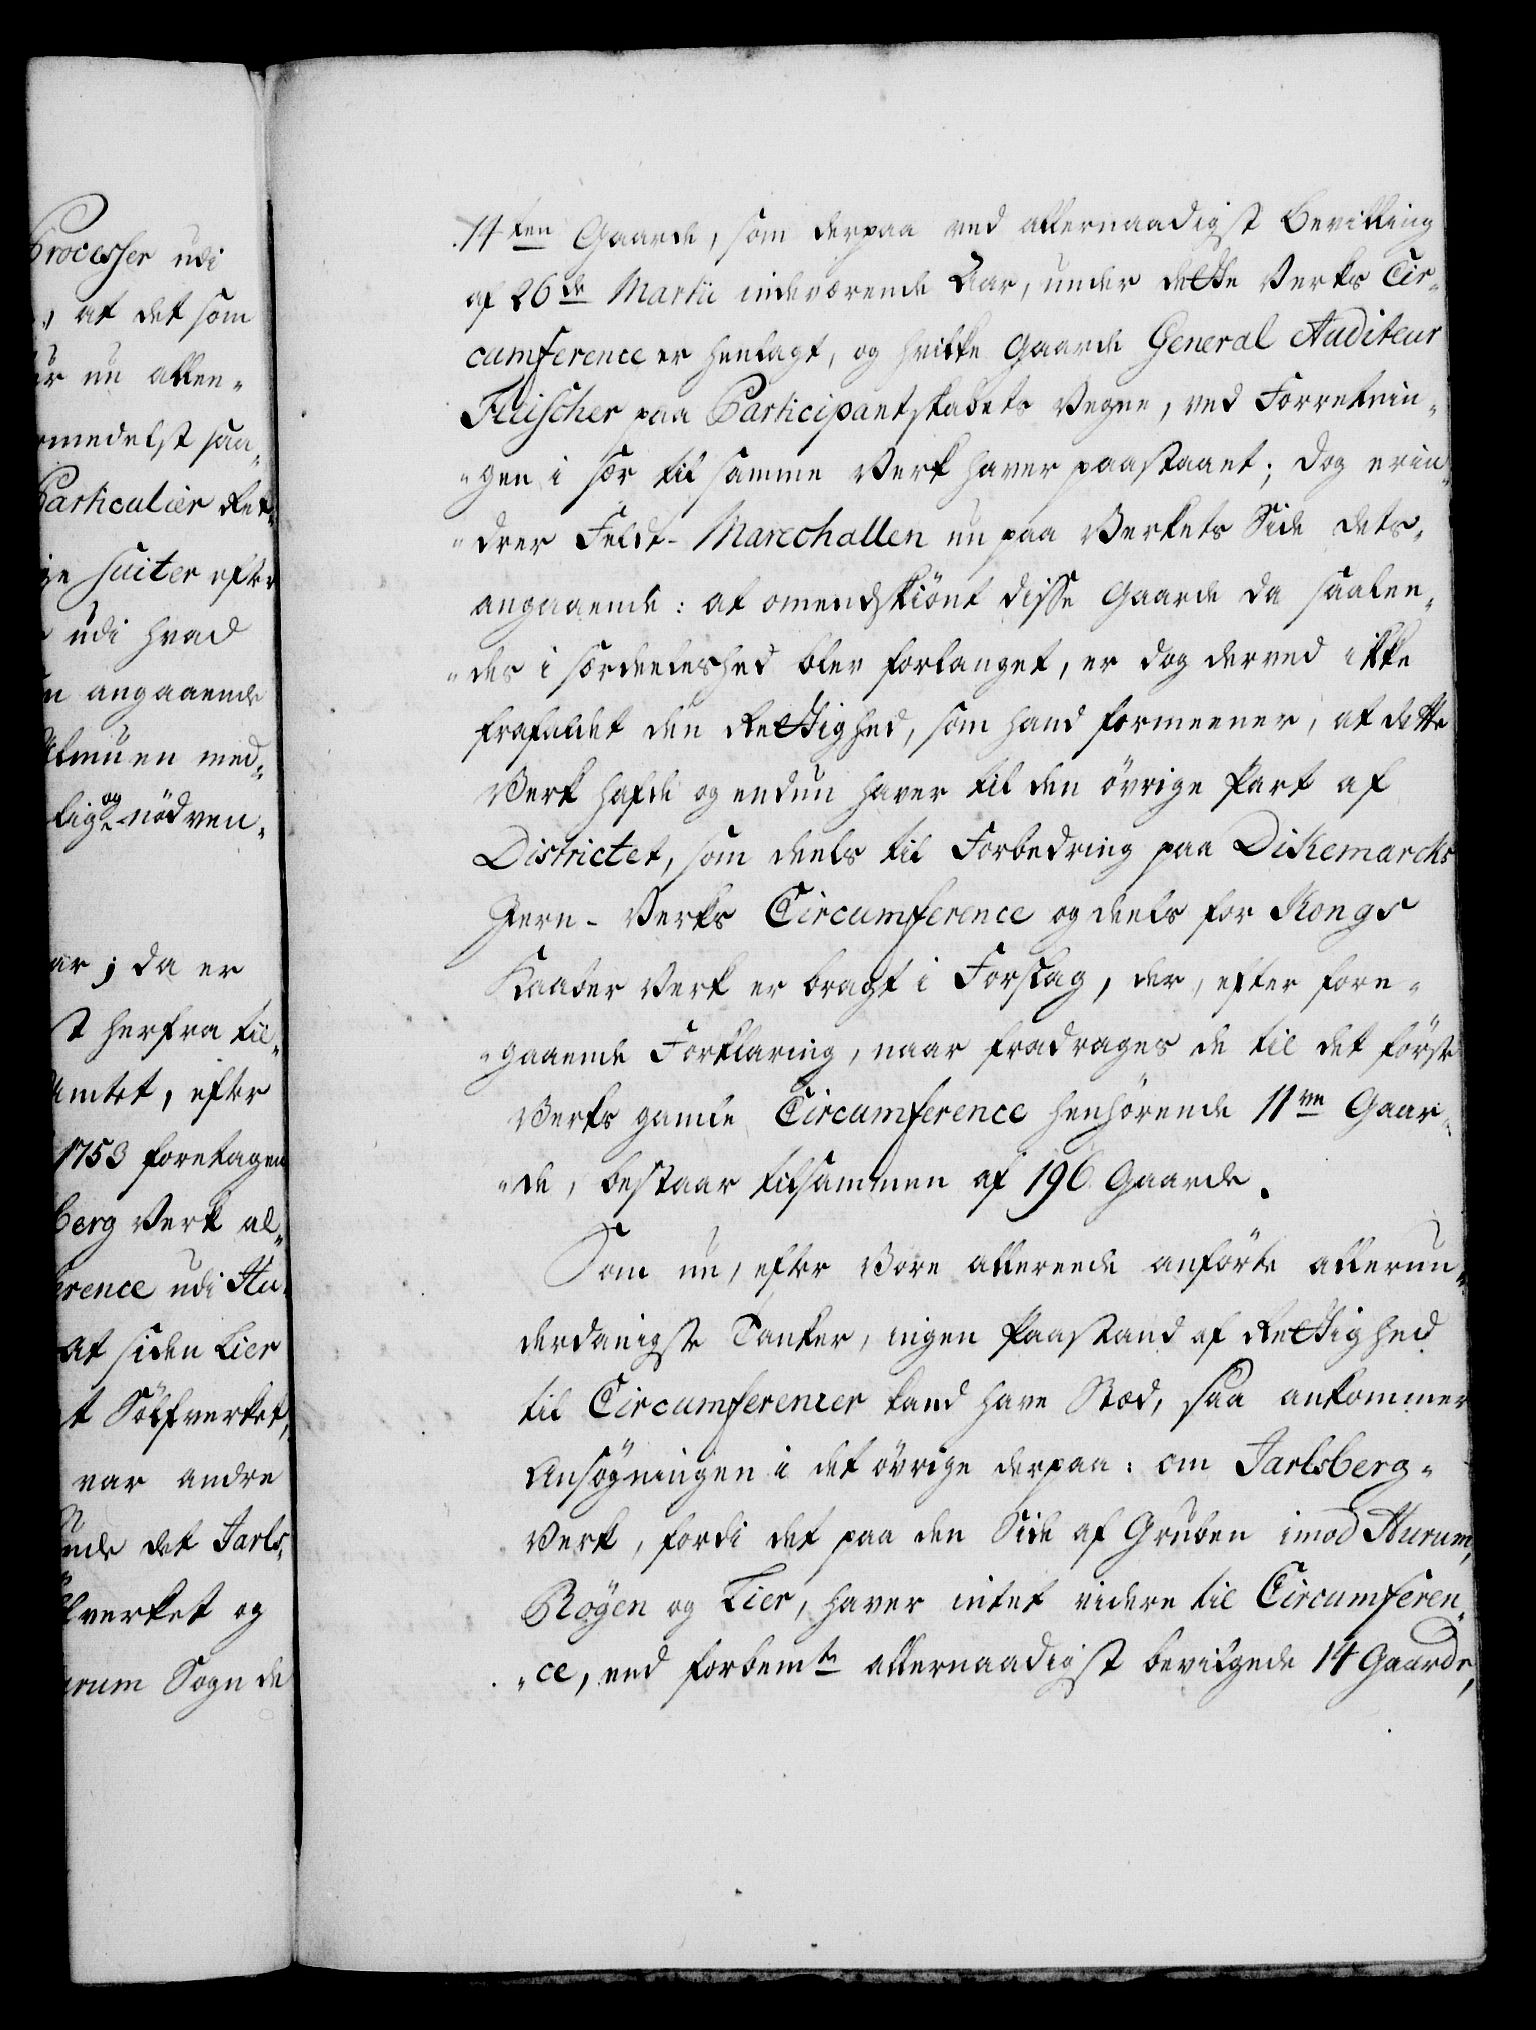 Processer udi
, at det som
er nu allen-
rmedelst saa-
Particulier Ret-
ge suiter efter
udi hvad
n angaaende
Almuen med-
lig og nödven-
ar; da er
t herfra til-
Amtet, efter
1753 foretagen
berg Verk al-
erence udi Hu-
at siden Lier
t Sölfverket,
var andre
nde det Jarls-
lverket og
urum Sogn de
14ten Gaarde, som derpaa ved allernaadigst Bevilling
af 26de Martii indeværende Aar, under dette Verks Cir-
cumference er henlagt, og hvilke Gaarde General Auditeur
Fleischer paa Participantskabets Vegne, ved Forretnin-
gen i sær til samme Verk haver paastaaet; dog erin-
drer Feldt-Marechallen nu paa Verkets Side dets-
angaaende: at omendskiönt disse Gaarde da saalen-
des i særdeeleshed blev forlanget, er dog derved ikke
frafaldet den Rettighed, som hand formeener, at dette
Verk hafde og endnu haver til den övrige Part af
Districtet, som deels til Forbedring paa Dikemarcks
Jern-Verks Circumference og deels for Kongs
Kaaber Verk er bragt i Forslag, der, efter fore-
gaaende Forklaring, naar fradrages de til det förste
Verks gamle Circumference henhörende 11ve Gaar-
de, bestaar tilsammen af 196 Gaarde.
Som nu, efter Vore allereede anförte allerun-
derdanigste Tanker, ingen Paastand af Rettighed
til Circumferencer kand have Stæd, saa ankommer
Ansögningen i det övrige derpaa: om Jarlsberg-
Verk, fordi det paa den Side af Gruben imod Hurum,
Röyen og Lier, haver intet videre til Circumferen-
ce, end forbemte allernaadigst bevilgede 14 Gaarde,